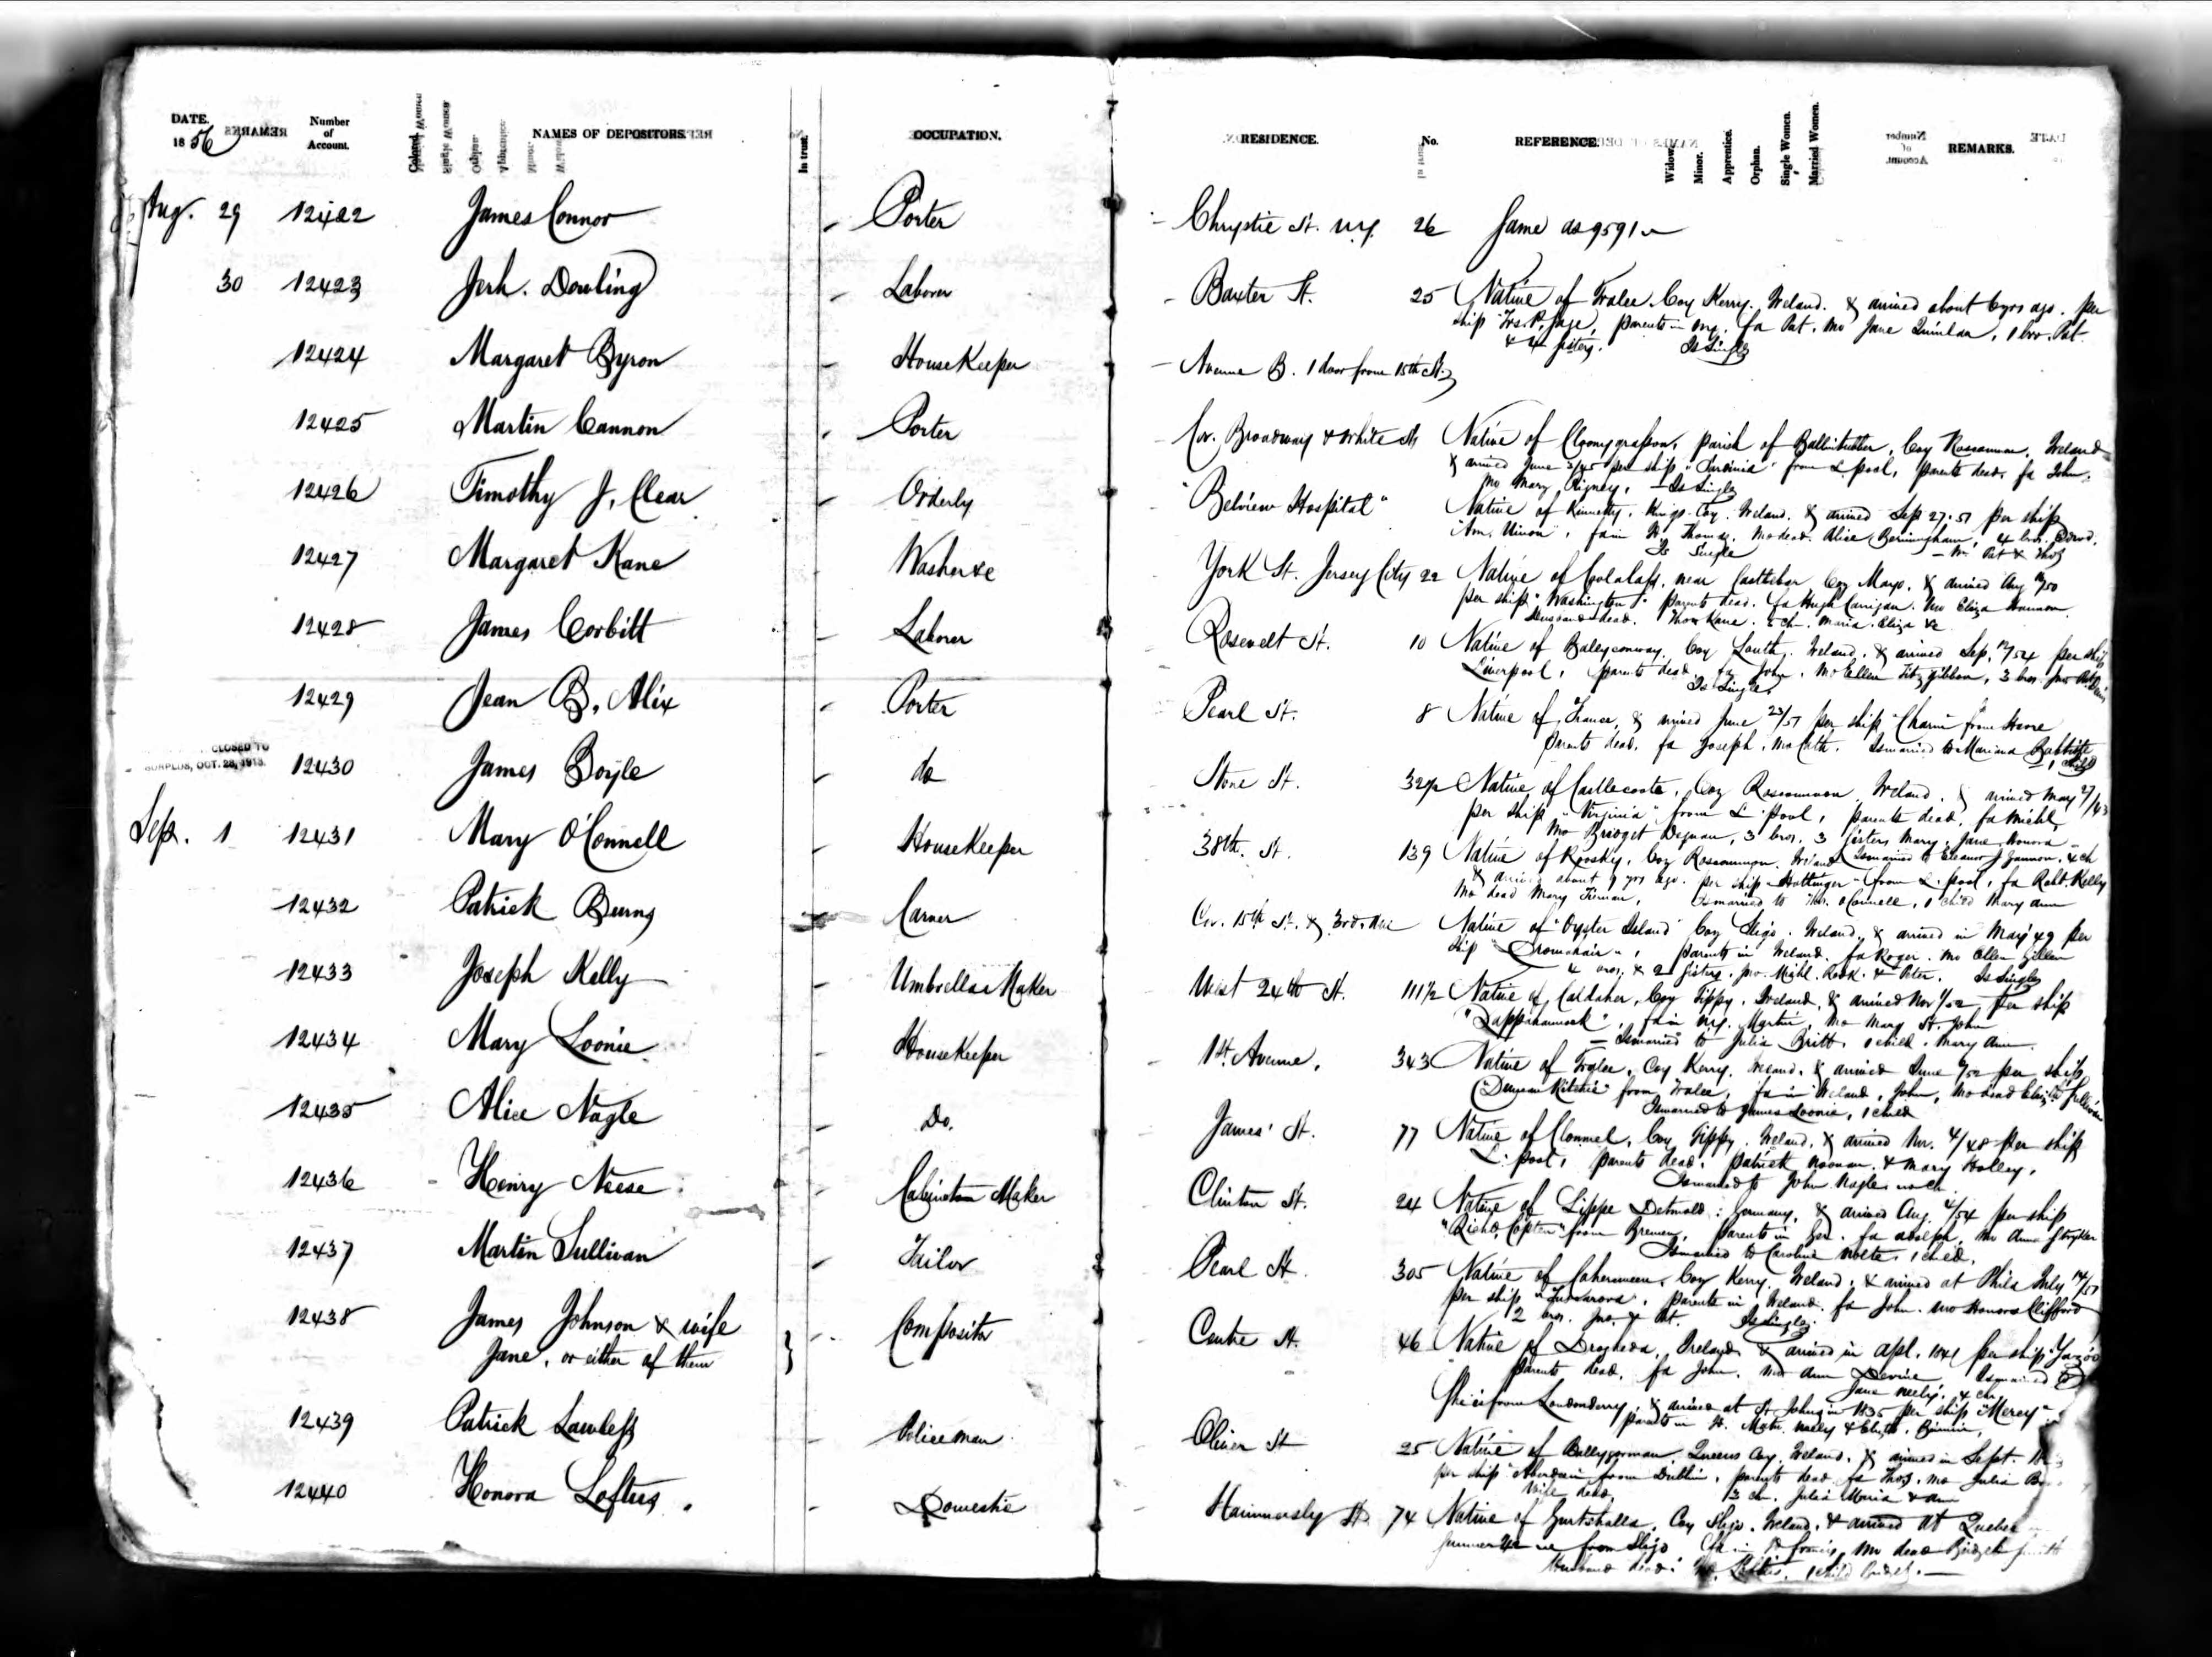 DATE. 1856 REMARKS Number of Account. Colored. NAMES OF DEPOSITORS. In trust. OCCUPATION. RESIDENCE. No. REFERENCE. Widow. Minor. Apprentice. Orphan. Single Women. Married Women. REMARKS.
Aug. 29 12422 James Connor Porter Chrystie St. N.Y. 26 Same as 9591
30 12423 Jerh. Dowling Laborer Baxter St. 25 Native of Tralee Coy Kerry, Ireland. & arrived about 6 yrs ago. per
ship parents in N.Y. fa Pat. mo Jane Quinlan, 1 bro. Pat.
& 4 sisters. Is Single
12424 Margaret Byron HouseKeeper Avenue B. 1 door from 15th St.
12425 Martin Cannon Porter Cor. Broadway & White Sts Native of parish of Coy Roscommon, Ireland
& arrived June per ship from L. pool, parents dead, fa John.
mo Mary Rigney, Is Single
12426 Timothy J. Clear Orderly "Belview Hospital" Native of Kinnetty, Kings Coy. Ireland, & arrived Sep 27. 51 per ship
"Am. Union", fa in Thomas. mo dead. Alice Bermingham, 4 bros. Edwd.
Is Single Wm Pat & Thos
12427 Margaret Kane Washer &c York St. Jersey City 22 Native of near Castlebar Coy Mayo. & arrived Aug
per ship "Washington" parents dead. fa Hugh Carrigan. mo Eliza
Husband dead. Thos Kane. ch. Maria. Eliza &c
12428 James Corbitt Laborer Rosevelt St. 10 Native of Baleyconway, Coy Louth, Ireland, & arrived Sep. per ship
Liverpool, parents dead fa John. mo Ellen Fitzgibbon, 3 bros.
Is Single.
12429 Jean B. Alix Porter Pearl St. 8 Native of France, & arrived June 23/51 per ship from Havre
parents dead. fa Joseph. mo Cath. Is married to Mariana Babtiste
CLOSED TO
SURPLUS, OCT. 28, 1913.
12430 James Boyle do Stone St. 32½ Native of Castlecoote, Coy Roscommon, Ireland. & arrived May
per ship "Virginia" from L. pool, parents dead. fa Michl,
mo Bridget Degnan, 3 bros. 3 sisters Mary, Jane, Honora
Is married to Eleanor J Gannon. 4 ch
Sep. 1 12431 Mary O'Connell HouseKeeper 38th. St. 139 Native of Roosky, Coy Roscommon, Ireland
& arrived about 9 yrs ago. per ship "Hottinger" from L. pool, fa Robt. Kelly
mo dead Mary Is married to Thos. O'Connell, 1 child Mary Ann
12432 Patrick Burns Carver Cor. 15th St. & 3rd. Ave Native of "Oyster Island" Coy Sligo. Ireland, & arrived in May 49 per
ship parents in Ireland. fa Roger. mo Ellen Gillen
4 bros. & 2 sisters. Jno. Michl. & Peter. Is Single
12433 Joseph Kelly Umbrella Maker West 24th St. 111½ Native of Coy Tippy. Ireland, & arrived Nov per ship
"Rappahannock", fa in N.Y. Martin, mo Mary St. John
Is married to Julia Britt. 1 child. Mary Ann
12434 Mary Loonie HouseKeeper 1st. Avenue, 343 Native of Tralee, Coy Kerry, Ireland. & arrived June per ship
"Duncan Ritchie" from Tralee, fa in Ireland, John, mo dead
Is married to James Loonie, 1 child
12435 Alice Nagle Do. James' St. 77 Native of Clonmel, Coy Tippy. Ireland, & arrived Nov. 4/48 per ship
L. pool, parents dead, Patrick Noonan & Mary Holley,
Is married to John Nagle. no ch
12436 Henry Neese Cabinet Maker Clinton St. 24 Native of Lippe Detmold: Germany, & arrived Aug. 4/54 per ship
from Bremen, parents in Ger. fa Adolph, mo Anna
Is married to Caroline Nolte. 1 child.
12437 Martin Sullivan Tailor Pearl St. 305 Native of Cahermeen, Coy Kerry, Ireland. & arrived at Phila July 14/51
per ship parents in Ireland. fa John. mo Honora Clifford
2 bros. Jno. & Pat. Is Single
12438 James Johnson & wife Compositor Centre St. 46 Native of Drogheda, Ireland & arrived in Apl. 1841 per ship "Yazoo"
Jane, or either of them
parents dead. fa John. mo Ann Devine Is married to
Jane Neely. 4 ch
She is from Londonderry, & arrived at St. Johns in 1835 per ship "Mercy"
parents in
12439 Patrick Lawless Policeman Oliver St 25 Native of Ballygorman, Queens Coy. Ireland, & arrived in Sept.
per ship "Aberdeen" from Dublin, parents dead fa Thos. mo Julia
Wife dead 3 ch. Julia Maria & Ann
12440 Honora Loftus. Domestic Hammersly St. 74 Native of Coy Sligo. Ireland. & arrived at Quebec
from Sligo mo dead Bridget
Husband dead. 1 child Bridget.